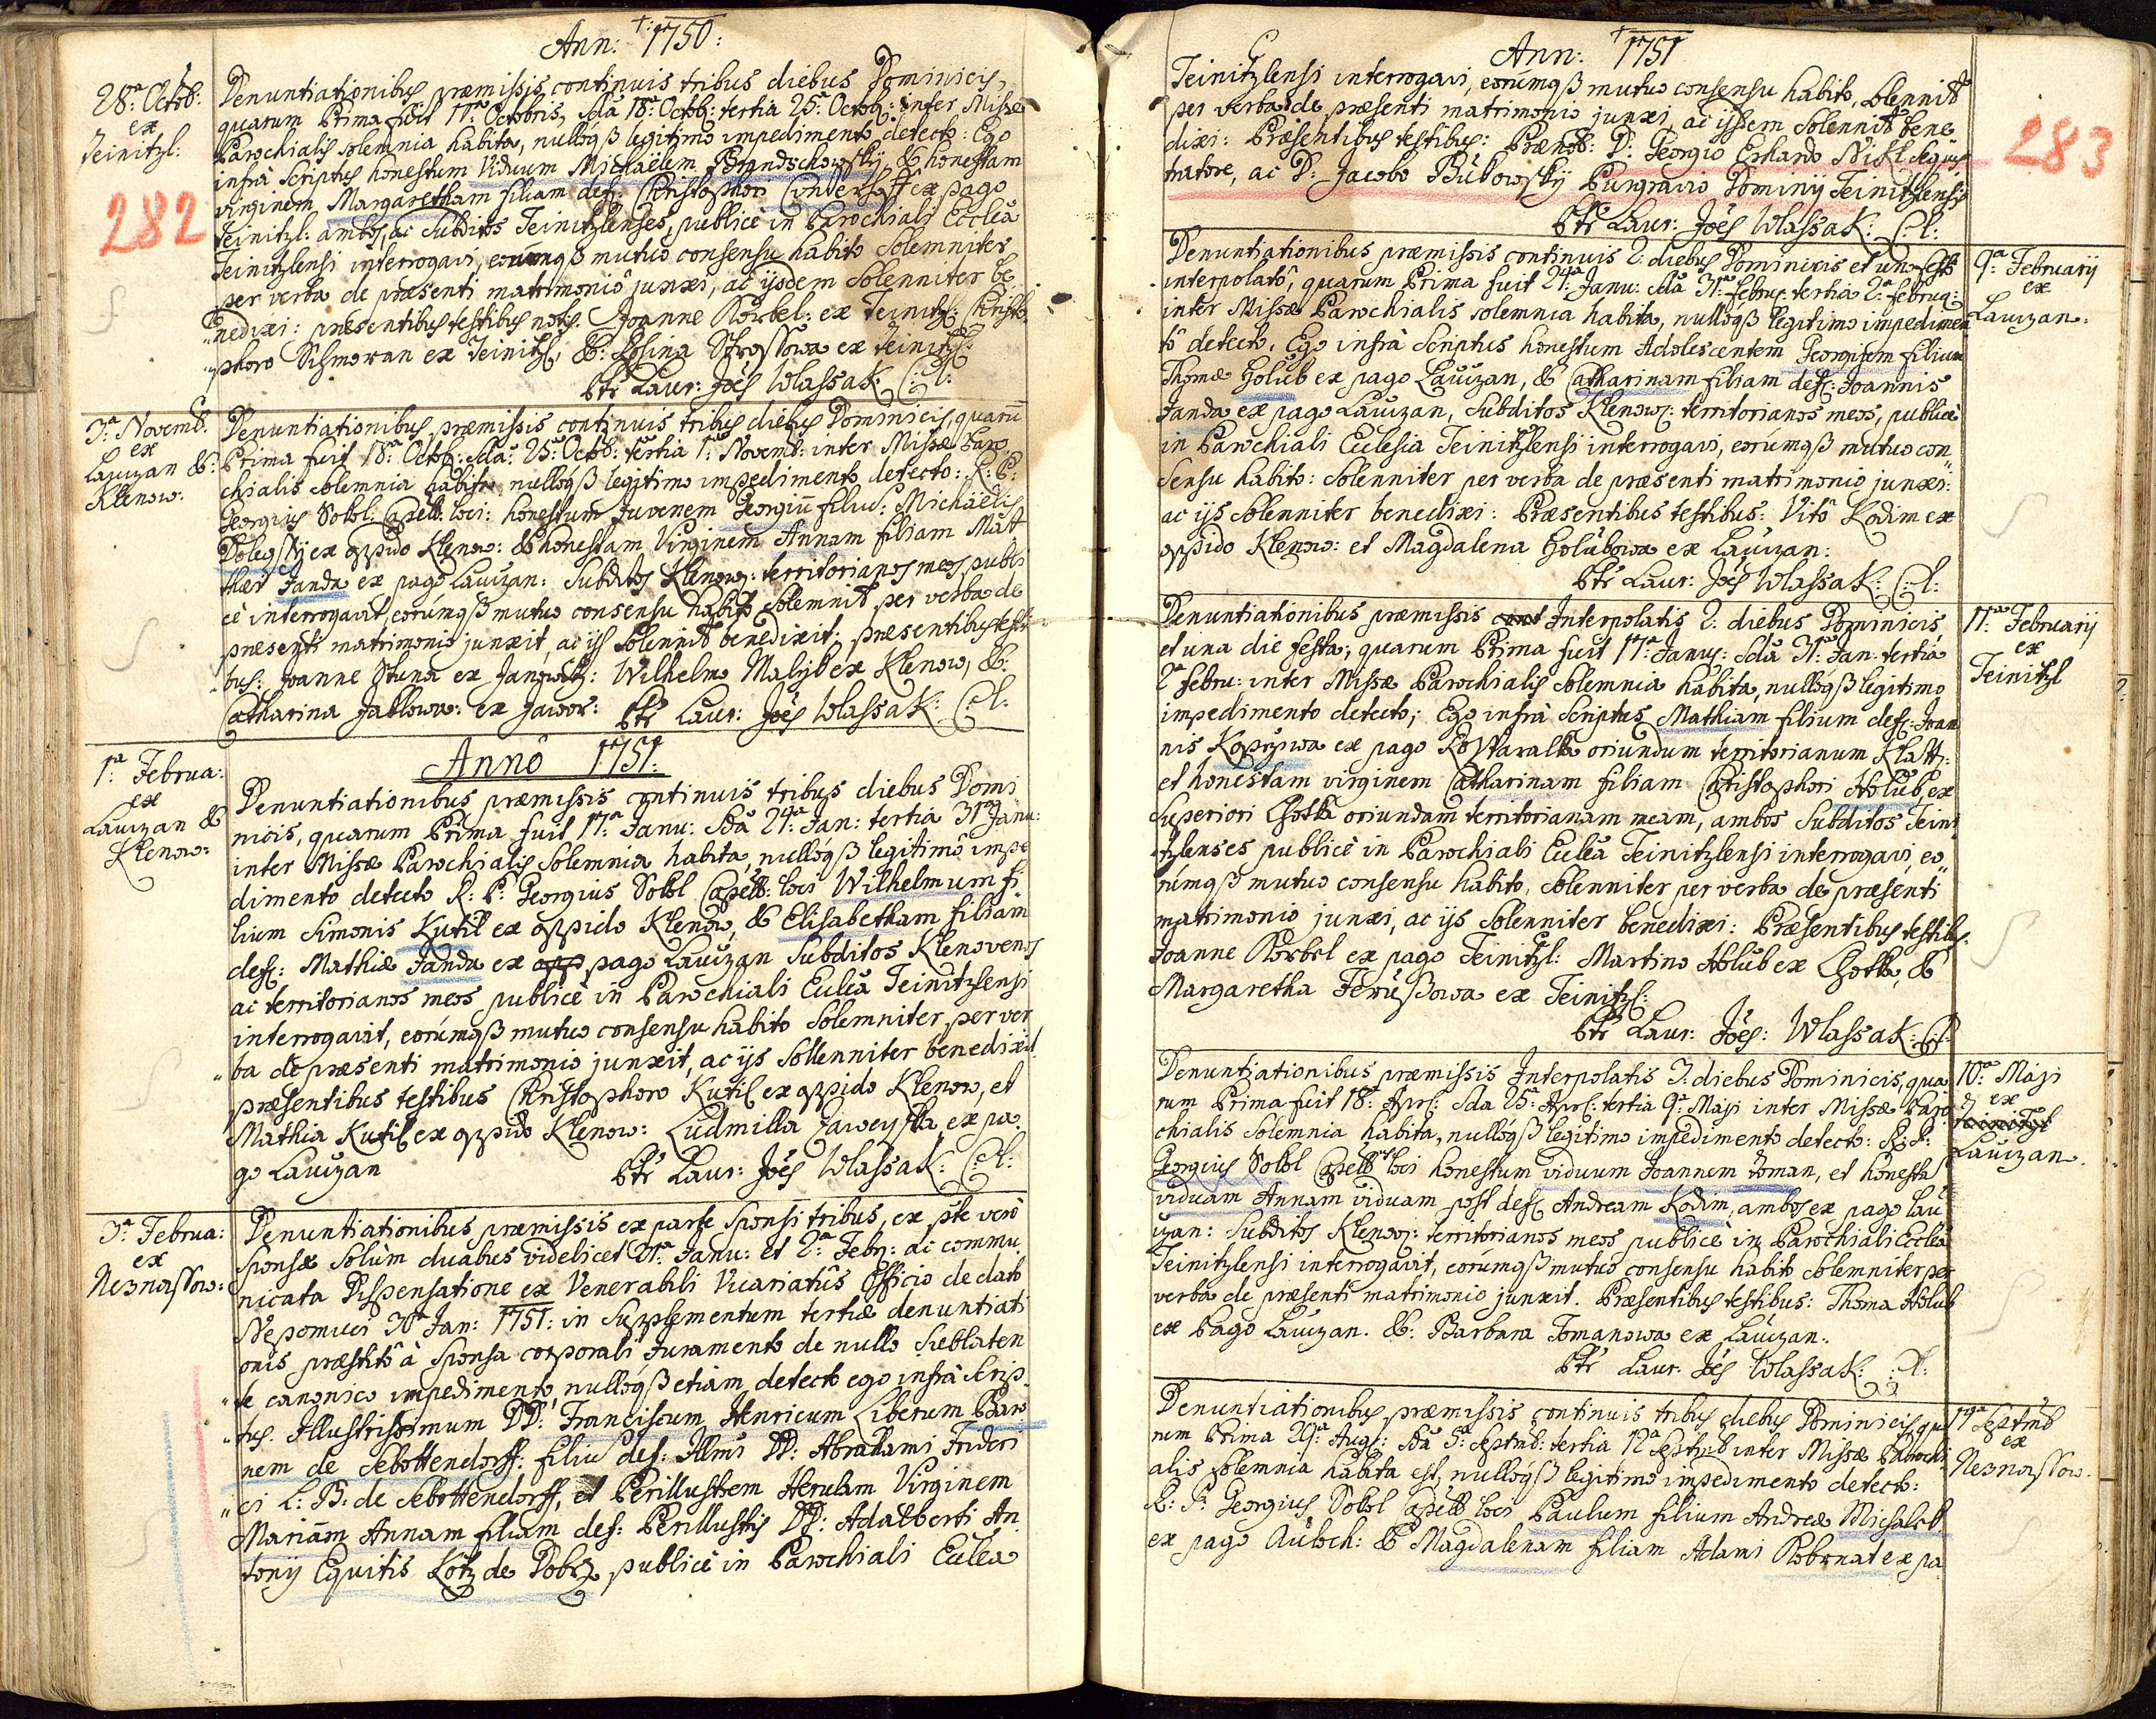 Ann: 1750:
28ª Octob:
ex
Teinitzl:
282
Denuntiationibus præmissis continuis tribus diebus Dominicis,
quarum Prima fuit 11ª Octobris, 2da 18ª Octob: tertia 25ª Octob: inter Missæ
Parochialis solemnia habita, nullóqß legitimo impedimento detecto: Ego
infrà Scriptus honestum Viduum Michaëlem & honestam
virginem Margaretham filiam def: Christophori ex pago
Teinitzl: ambos, ac Subditos Teinitzlenses, publicè in Parochiali Ecclâ
Teinitzlensi interrogavi, eorúmqß mutuo consensu habito Solemniter
per verba de præsenti matrimoniô junxi, ac ijsdem Solenniter be
nedixi: præsentibus testibus notis. Joanne Korbel: ex Teinitzl: Christo
phoro Schmoran ex Teinitzl: &: Rosina ex Teinitzl:
Ptr Laur: Joës Wlassak: C: l:
3ª Novemb:
ex
Lauzan &:
Klenow:
Denuntiationibus præmissis continuis tribus diebus Dominicis, quarū
Prima fuit 18ª Octob: 2da: 25ª Octob: tertia 1ª Novemb: inter Missæ Paro
chialis solemnia habita, nullóqß legitimo impedimento detecto: R: P:
Georgius Sokol: Capell: loci: honestum Juvenem Georgiū filiū: Michaëlis
ex oppido Klenow: & honestam Virginem Annam filiam Mat
thæi Janda ex pago Lauzan: Subditos Klenow: territorianos meos publi
cè interrogavit, eorúmqß mutuo consensu habito Solemnit per verba de
præsenti matrimonio junxit, ac ijs Solennit benedixit: præsentibus testi
bus: Joanne Stuna ex Janowitz: Wilhelmo Malý ex Klenow, &:
Catharina Jablowa: ex Jawor: Ptr Laur: Joës Wlassak: C: l:
Annô 1751:
1ª Februa:
ex
Lauzan &
Klenow:
Denuntiationibus præmissis continuis tribus diebus Domi
nicis, quarum Prima fuit 17ª Janu: 2da 24ª Jan: tertia 31ª Janu:
inter Missæ Parochialis Solemnia habita, nullóqß legitimô impe
dimento detecto R: P: Georgius Sokol Capell: loci Wilhelmum fi
lium Simonis Kutil ex oppido Klenow, & Elisabetham filiam
def: Mathiæ Janda ex pago Lauzan Subditos Klenovens
ac territorianos meos publicè in Parochiali Ecclâ Teinitzlensi
interrogavit, eorúmqß mutuo consensu habito Solemniter per ver
ba de præsenti matrimonio junxit, ac ijs Sollenniter benedixit
præsentibus testibus Christophoro Kutil ex oppido Klenow, et
Mathia Kutil ex oppido Klenow: Ludmilla ex pa
go Lauzan Ptr Laur: Joës Wlassak: C: l:
3ª Februa:
ex
Neznassow:
Denuntiationibus præmissis ex parte Sponsi tribus, ex pte verò
Sponsæ Solùm duabus videlicet 31ª Janu: et 2ª Feby: ac commu
nicata Dispensatione ex Venerabili Vicariatûs Officio de dato
Nepomuci 30ª Jan: 1751: in Supplementum tertiæ denuntiati
onis præstitô à Sponsa corporali Juramento de nullo Sublaten
te canonico impedimento, nullóqß etiam detecto ego infrà Scrip
tus. Illustrissimum DD: Franciscum Henricum Liberum Baro
nem de Sebottendorff: filiū def: Illmi DD: Abrahami Frideri
ci L: B: de Sebottendorff, et Perillustrem Herulam Virginem
Mariam Annam filiam def: Perillustris DD: Adalberti An
tonij Equitis Kotz de Dobrz publicè in Parochiali Ecclea
Ann: 1751
283
Teinitzlensi interrogavi, eorúmqß mutuo consensu habito, Solennit
per verba de præsenti matrimonio junxi, ac ijsdem Solennit bene
dixi: Præsentibus testibus: Prænob: D: Georgio Erhardo Nikl
tratore, ac D: Jacobo Bukowsky Purgravio Dominij Teinitzlensis
Ptr Laur: Joës Wlassak: C: l:
9ª Februarij
ex
Lauzan:
Denuntiationibus præmissis continuis 2: diebus Dominicis et uno festo
interpolatô, quarum Prima fuit 24ª Janu: 2da 31ª tertia 2ª februa:
inter Missæ Parochialis solemnia habita, nullóqß legitimo impedimen
tô detecto, Ego infrà Scriptus honestum Adolescentem Georgium filium
Thomæ Holub ex pago Lauzan, & Catharinam filiam def: Joannis
Janda ex pago Lauzan, Subditos Klenow: territorianos meos, publicè
in Parochiali Ecclesia Teinitzlensi interrogavi, eorumqß mutuo con
sensu habito: Solenniter per verba de præsenti matrimonio junxi:
ac ijs Solenniter benedixi: Præsentibus testibus: Vitô Kodim ex
oppido Klenow: et Magdalena Holubowa ex Lauzan:
Ptr Laur: Joës Wlassak: C: l:
11ª Februarij
ex
Teinitzl
Denuntiationibus præmissis Interpolatis 2: diebus Dominicis,
et una die festa, quarum Prima fuit 17ª Janu: 2da 31ª Jan: tertia
2ª febru: inter Missæ Parochialis Solemnia habita, nullóqß legitimo
impedimento detecto; Ego infrà Scriptus Mathiam filium def: Joan
nis ex pago oriundum territorianum Klatt:
et honestam virginem Catharinam filiam Christophori Holub ex
Superiori Lhotta oriundam territorianam meam, ambos Subditos Teini
tzlenses publicè in Parochiali Ecclâ Teinitzlensi interrogavi, eo
rúmqß mutuo consensu habito, Solenniter per verba de præsenti
matrimonio junxi, ac ijs Solenniter benedixi: Præsentibus testibus:
Joanne Korbel ex pago Teinitzl: Martino Holub ex Lhotta, &
Margaretha ex Teinitzl:
Ptr Laur: Joës: Wlassak: C: l:
10ª Maji
ex
Lauzan.
Denuntiationibus præmissis Interpolatis 3: diebus Dominicis, qua
rum Prima fuit 18ª Apr: 2da 25ª Apr: tertia 9ª Maji inter Missæ Paro
chialis Solemnia habita, nullóqß legitimo impedimento detecto: R: P:
Georgius Sokol Capell: loci honestum viduum Joannem Toman, et honestā
viduam Annam viduam post def: Andream Kodim, ambos ex pago Lau
zan: Subditos Klenow: territorianos meos publicè in Parochiali Ecclâ
Teinitzlensi interrogavit, eorúmqß mutuo consensu habito Solemniter per
verba de præsenti matrimonio junxit. Præsentibus testibus: Thoma Holub
ex Pago Lauzan. &: Barbara Tomanowa ex Lauzan:
Ptr Laur: Joës Wlassak: C: l:
Septmb
ex
Neznassow.
Denuntiationibus præmissis continuis tribus diebus Dominicis, qua
rum Prima 29ª Aug: 2da 5ª Septmb: tertia 12ª Septmb inter Missæ Parochi
alis Solemnia habita est, nullóqß legitimo impedimento detecto:
R: P: Georgius Sokol Capell: loci Paulum filium Andreæ Michalek
ex pago & Magdalenam filiam Adami ex pa